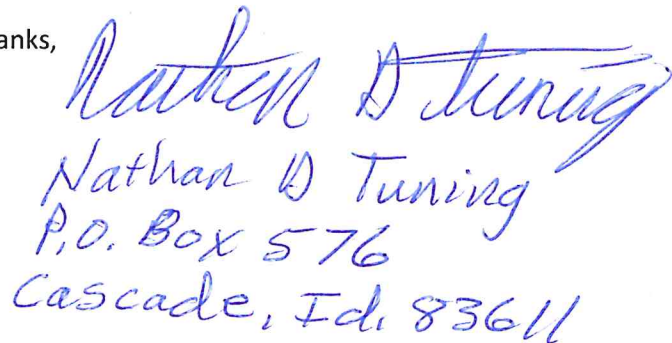 anks,
Nathan D Tuning
Nathan D Tuning
P.O. Box 576
Cascade, Id. 83611